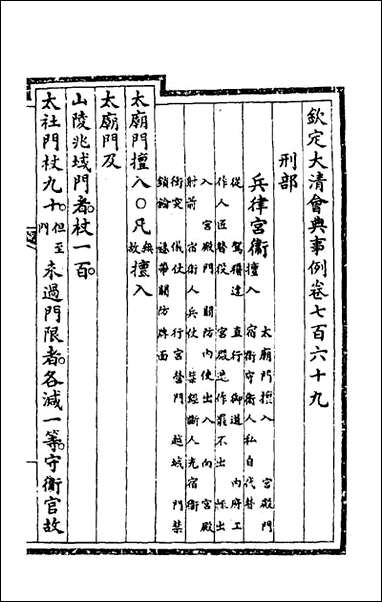 欽定大清會典事例卷七百六十九
刑部
兵律宮衛 擅入 太廟門擅入 宮殿門
宿衛守衛人私自代替
從 駕稽違 直行 御道 內府工
作人匠替役 宮殿造作罷不出 輒出
入 宮殿門 關防內使出入 向 宮殿
射箭 宿衛人兵仗 禁經斷人充宿衛
衝突 儀仗 行宮營門 越城 門禁
鎖鑰 懸帶關防牌面
太廟門擅入〇凡無故擅入
太廟門及
山陵兆域門者杖一百
太社門杖九十但至門未過門限者各減一等守衛官故